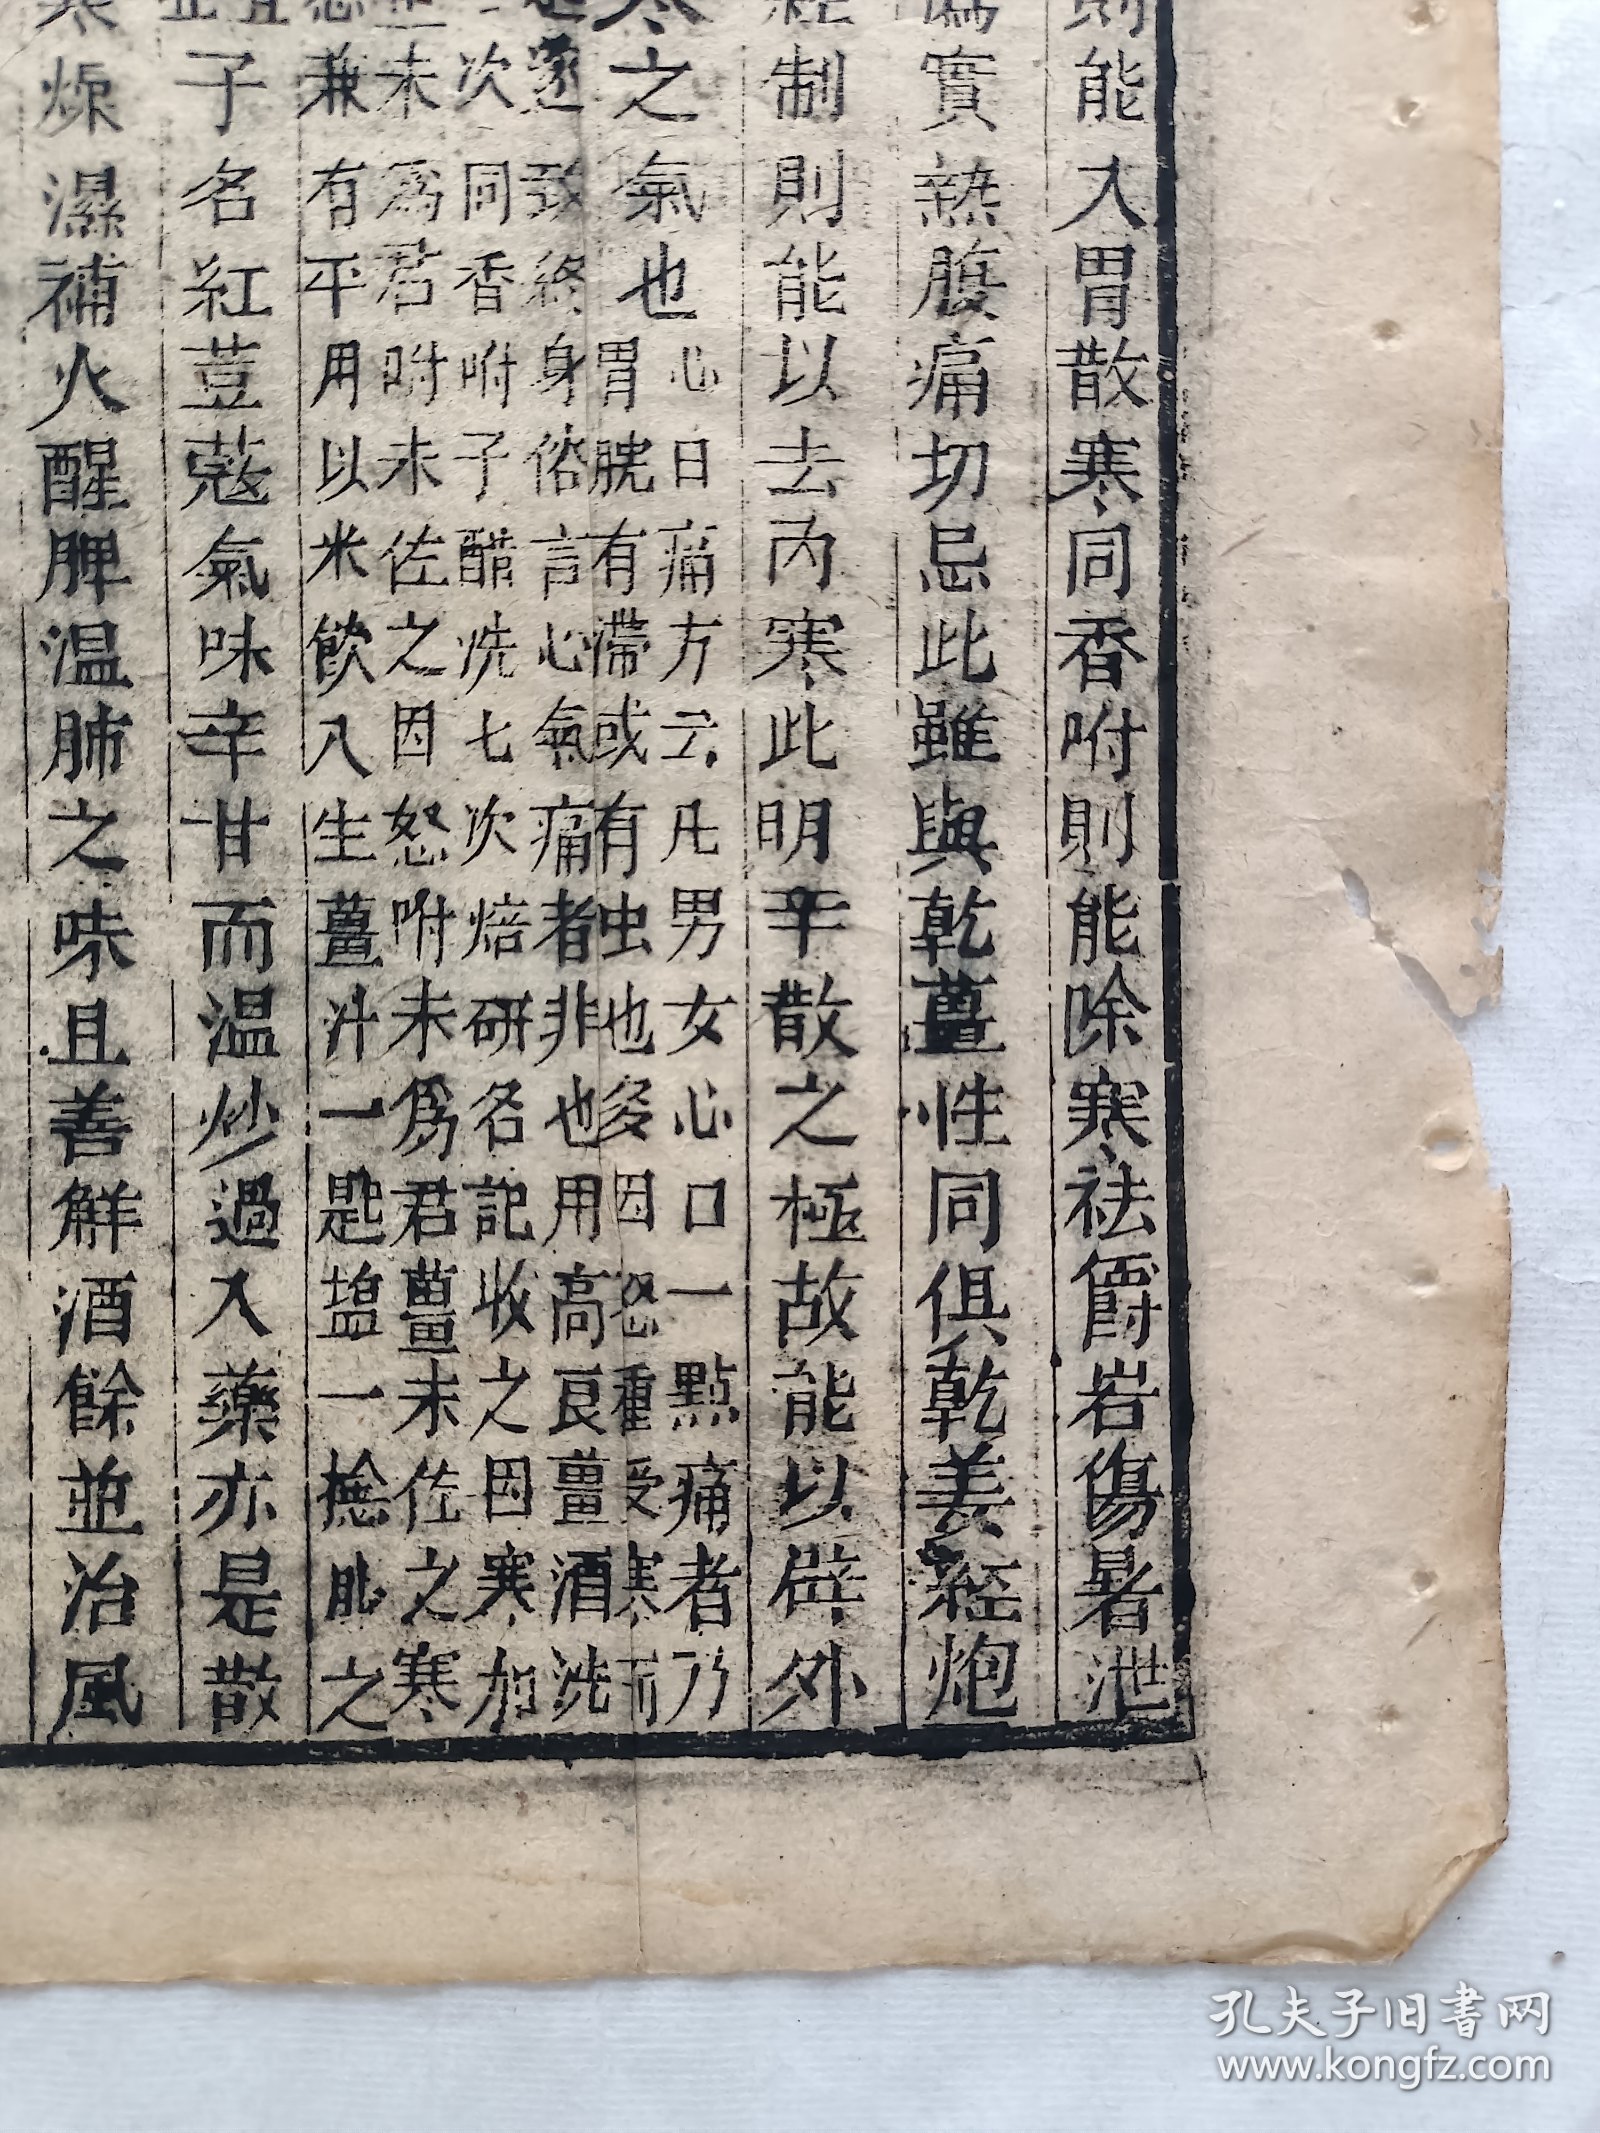 則能入胃散寒同香附則能除寒祛欝岩傷暑泄
爲實熱腹痛切忌此雖與乾薑性同俱乾姜經炮
經制則能以去內寒此明辛散之極故能以辟外
寒之氣也心日痛方云凡男女心口一點痛者乃
胃脘有滯或有虫也多因怒種受寒而
起遂致終身俗言心氣痛者非也用高良薑酒洗
七次同香附子醋洗七次焙研各記收之因寒加
薑末爲君附末佐之因怒附末爲君薑末佐之寒
怒兼有平用以米飲入生薑汁一匙塩一捻服之
子名紅荳蔻氣味辛甘而温炒過入藥亦是散
寒燥濕補火醒脾温肺之味且善觧酒餘並治風
孔夫子旧书网
www.kongfz.com